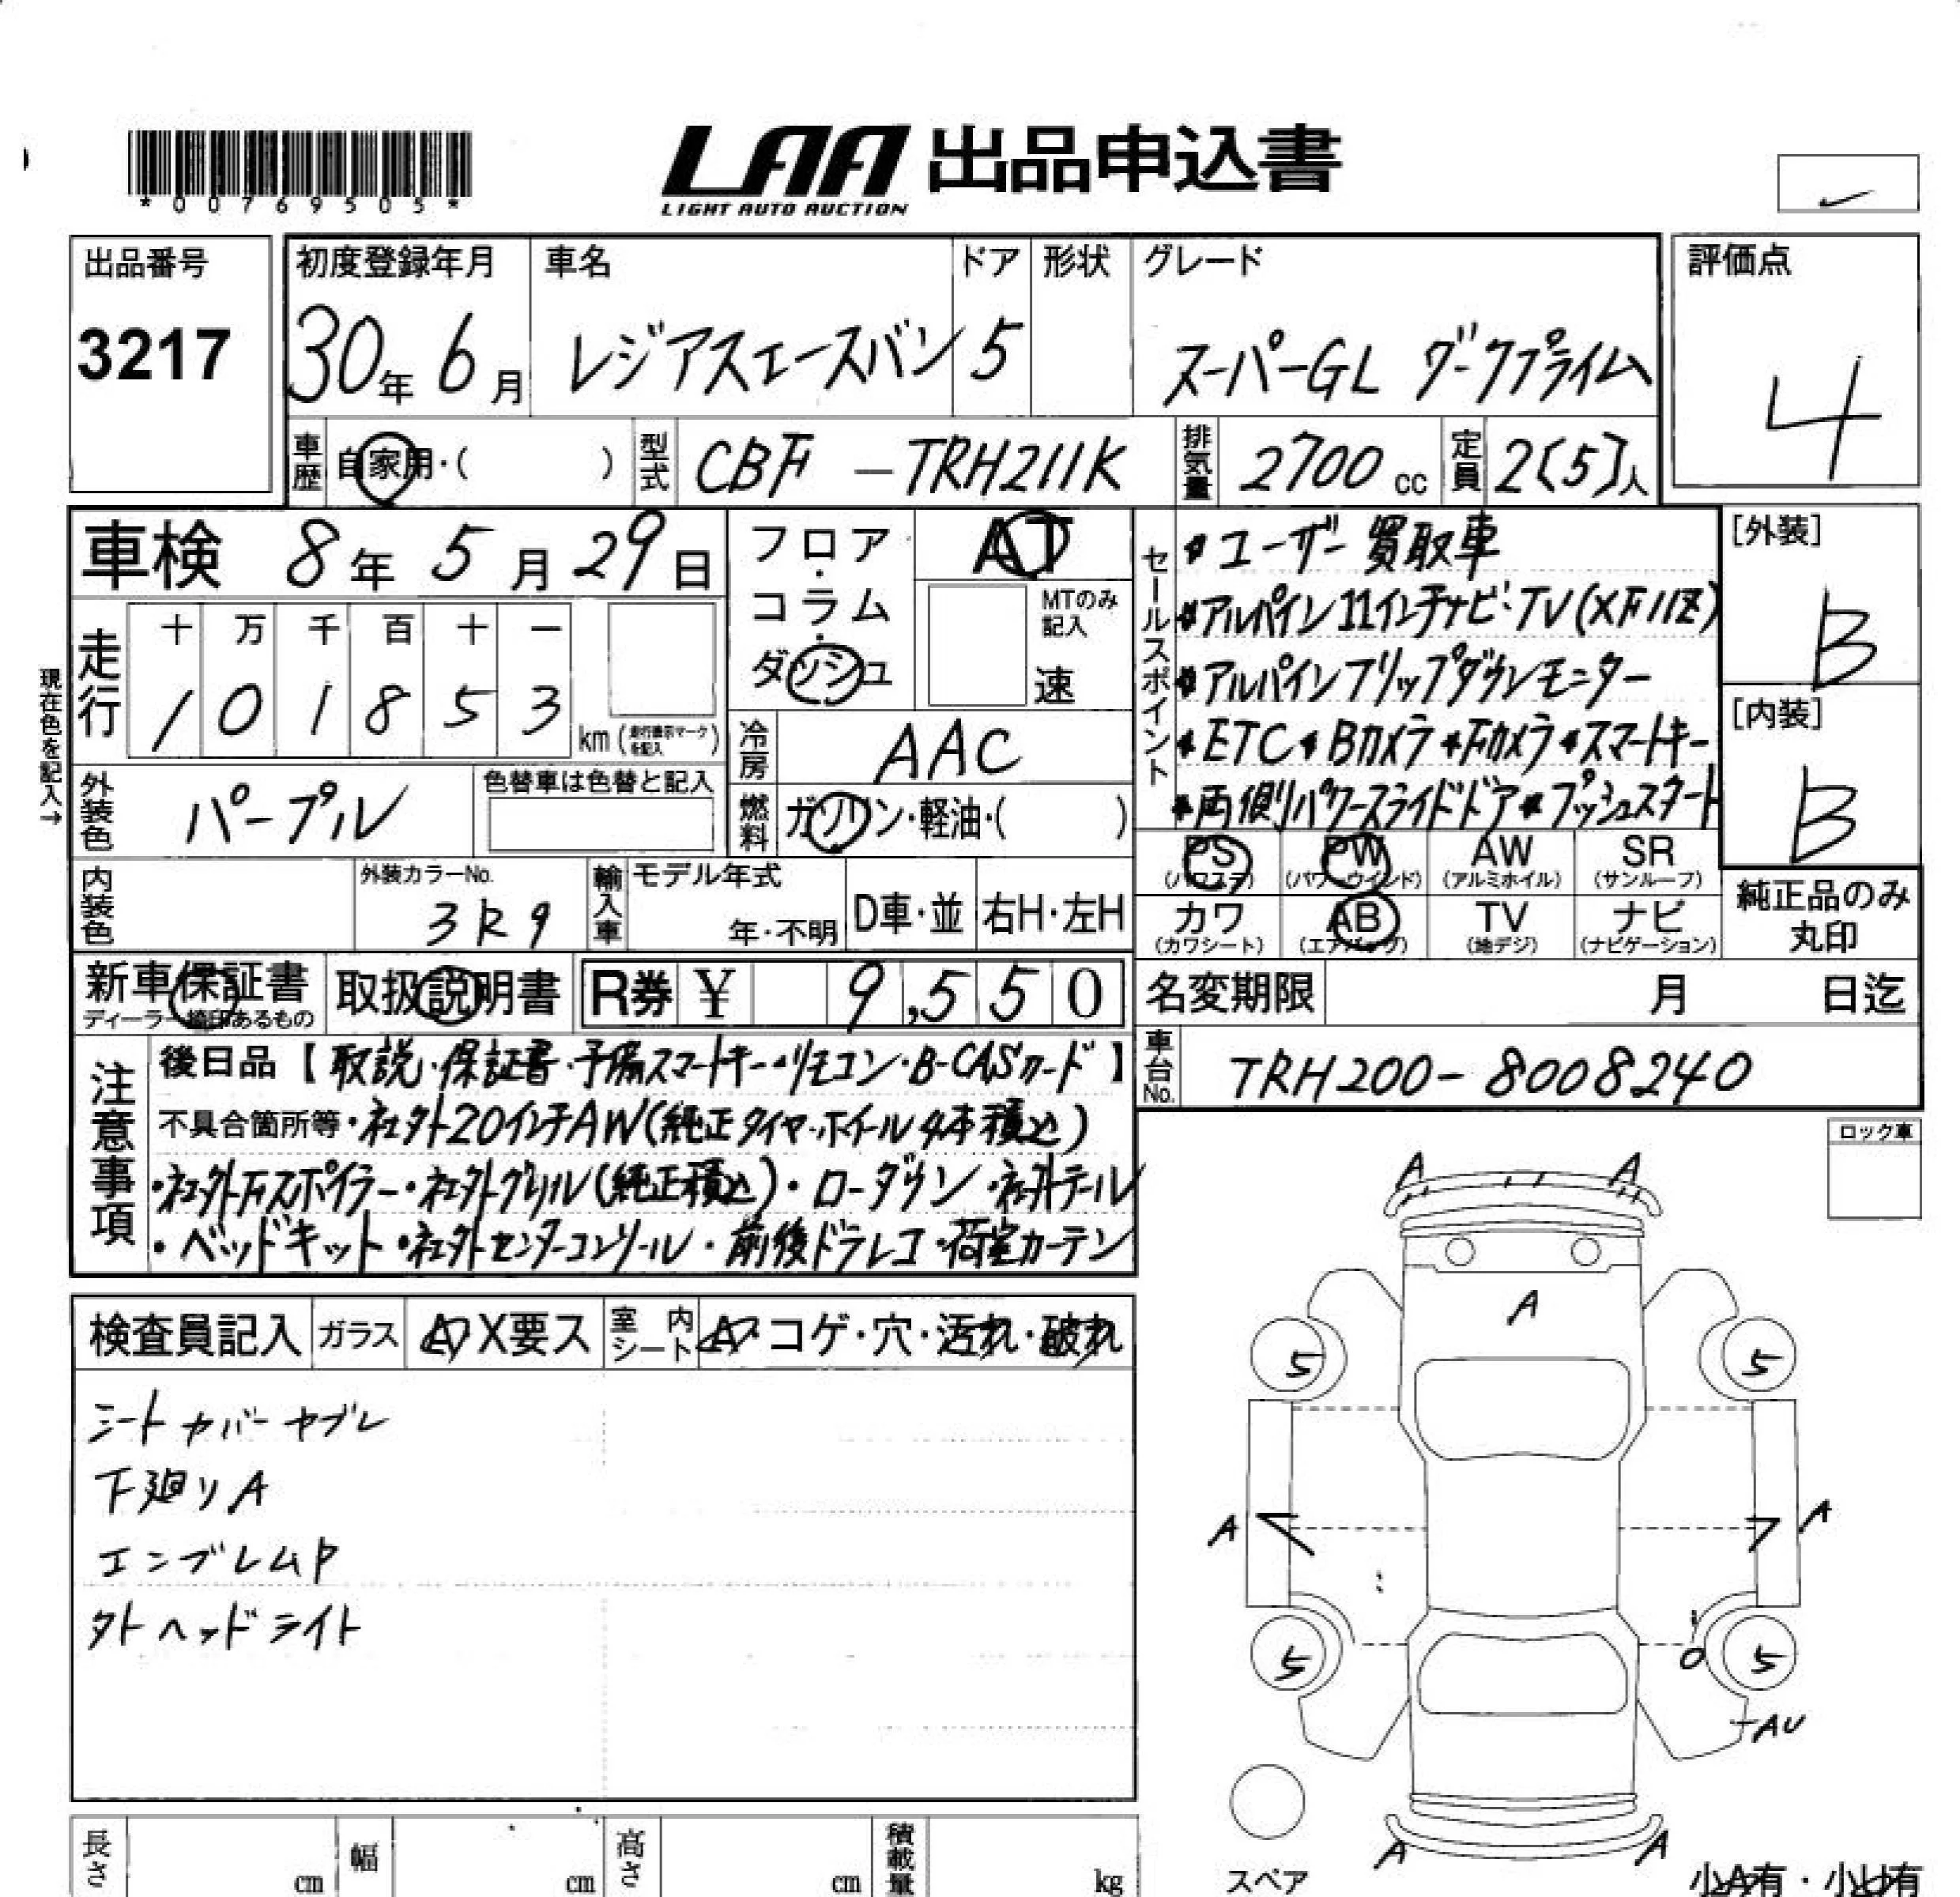 *00769505*
LAA 出品申込書
LIGHT AUTO AUCTION
出品番号
3217
初度登録年月
30年 6月
車名
レジアスエースバン
ドア
5
形状
グレード
スーパーGL ダークプライム
評価点
4
車歴 自家用・( )
型式 CBF-TRH211K
排気量 2700cc
定員 2[5]人
車検 8年 5月 29日
走行
十 万 千 百 十 一
1 0 1 8 5 3 km (走行表示マークを記入)
現在色を記入→
外装色 パープル
色替車は色替と記入
フロア・コラム・ダッシュ
AT
MTのみ記入
速
冷房 AAC
燃料 ガソリン・軽油・( )
セールスポイント
*ユーザー買取車
*アルパイン11インチナビ・TV(XF11Z)
*アルパインフリップダウンモニター
*ETC*Bカメラ*Fカメラ*スマートキー
*両側パワースライドドア*プッシュスタート
[外装]
B
[内装]
B
PS (パワステ) PW (パワーウインド) AW (アルミホイル) SR (サンルーフ)
カワ (カワシート) AB (エアバッグ) TV (地デジ) ナビ (ナビゲーション)
純正品のみ丸印
内装色
外装カラーNo.
3R9
輸入車 モデル年式
年・不明
D車・並 右H・左H
新車保証書
ディーラー捺印あるもの
取扱説明書
R券 ¥ 9,550
名変期限 月 日迄
車台No. TRH200-8008240
注意事項
後日品【取説・保証書・予備スマートキー・リモコン・B-CASカード】
不具合箇所等・社外20インチAW(純正タイヤ・ホイール4本積込)
・社外Fスポイラー・社外グリル(純正積込)・ローダウン・社外テール
・ベッドキット・社外センターコンソール・前後ドラレコ・荷室カーテン
ロック車
検査員記入 ガラス X要ス 室内シート コゲ・穴・汚れ・破れ
シートカバーヤブレ
下廻りA
エンブレムP
外ヘッドライト
A A
A
5 5
A A
5 5
O
AU
A A
スペア
長さ cm 幅 cm 高さ cm 積載量 kg
小A有・小U有